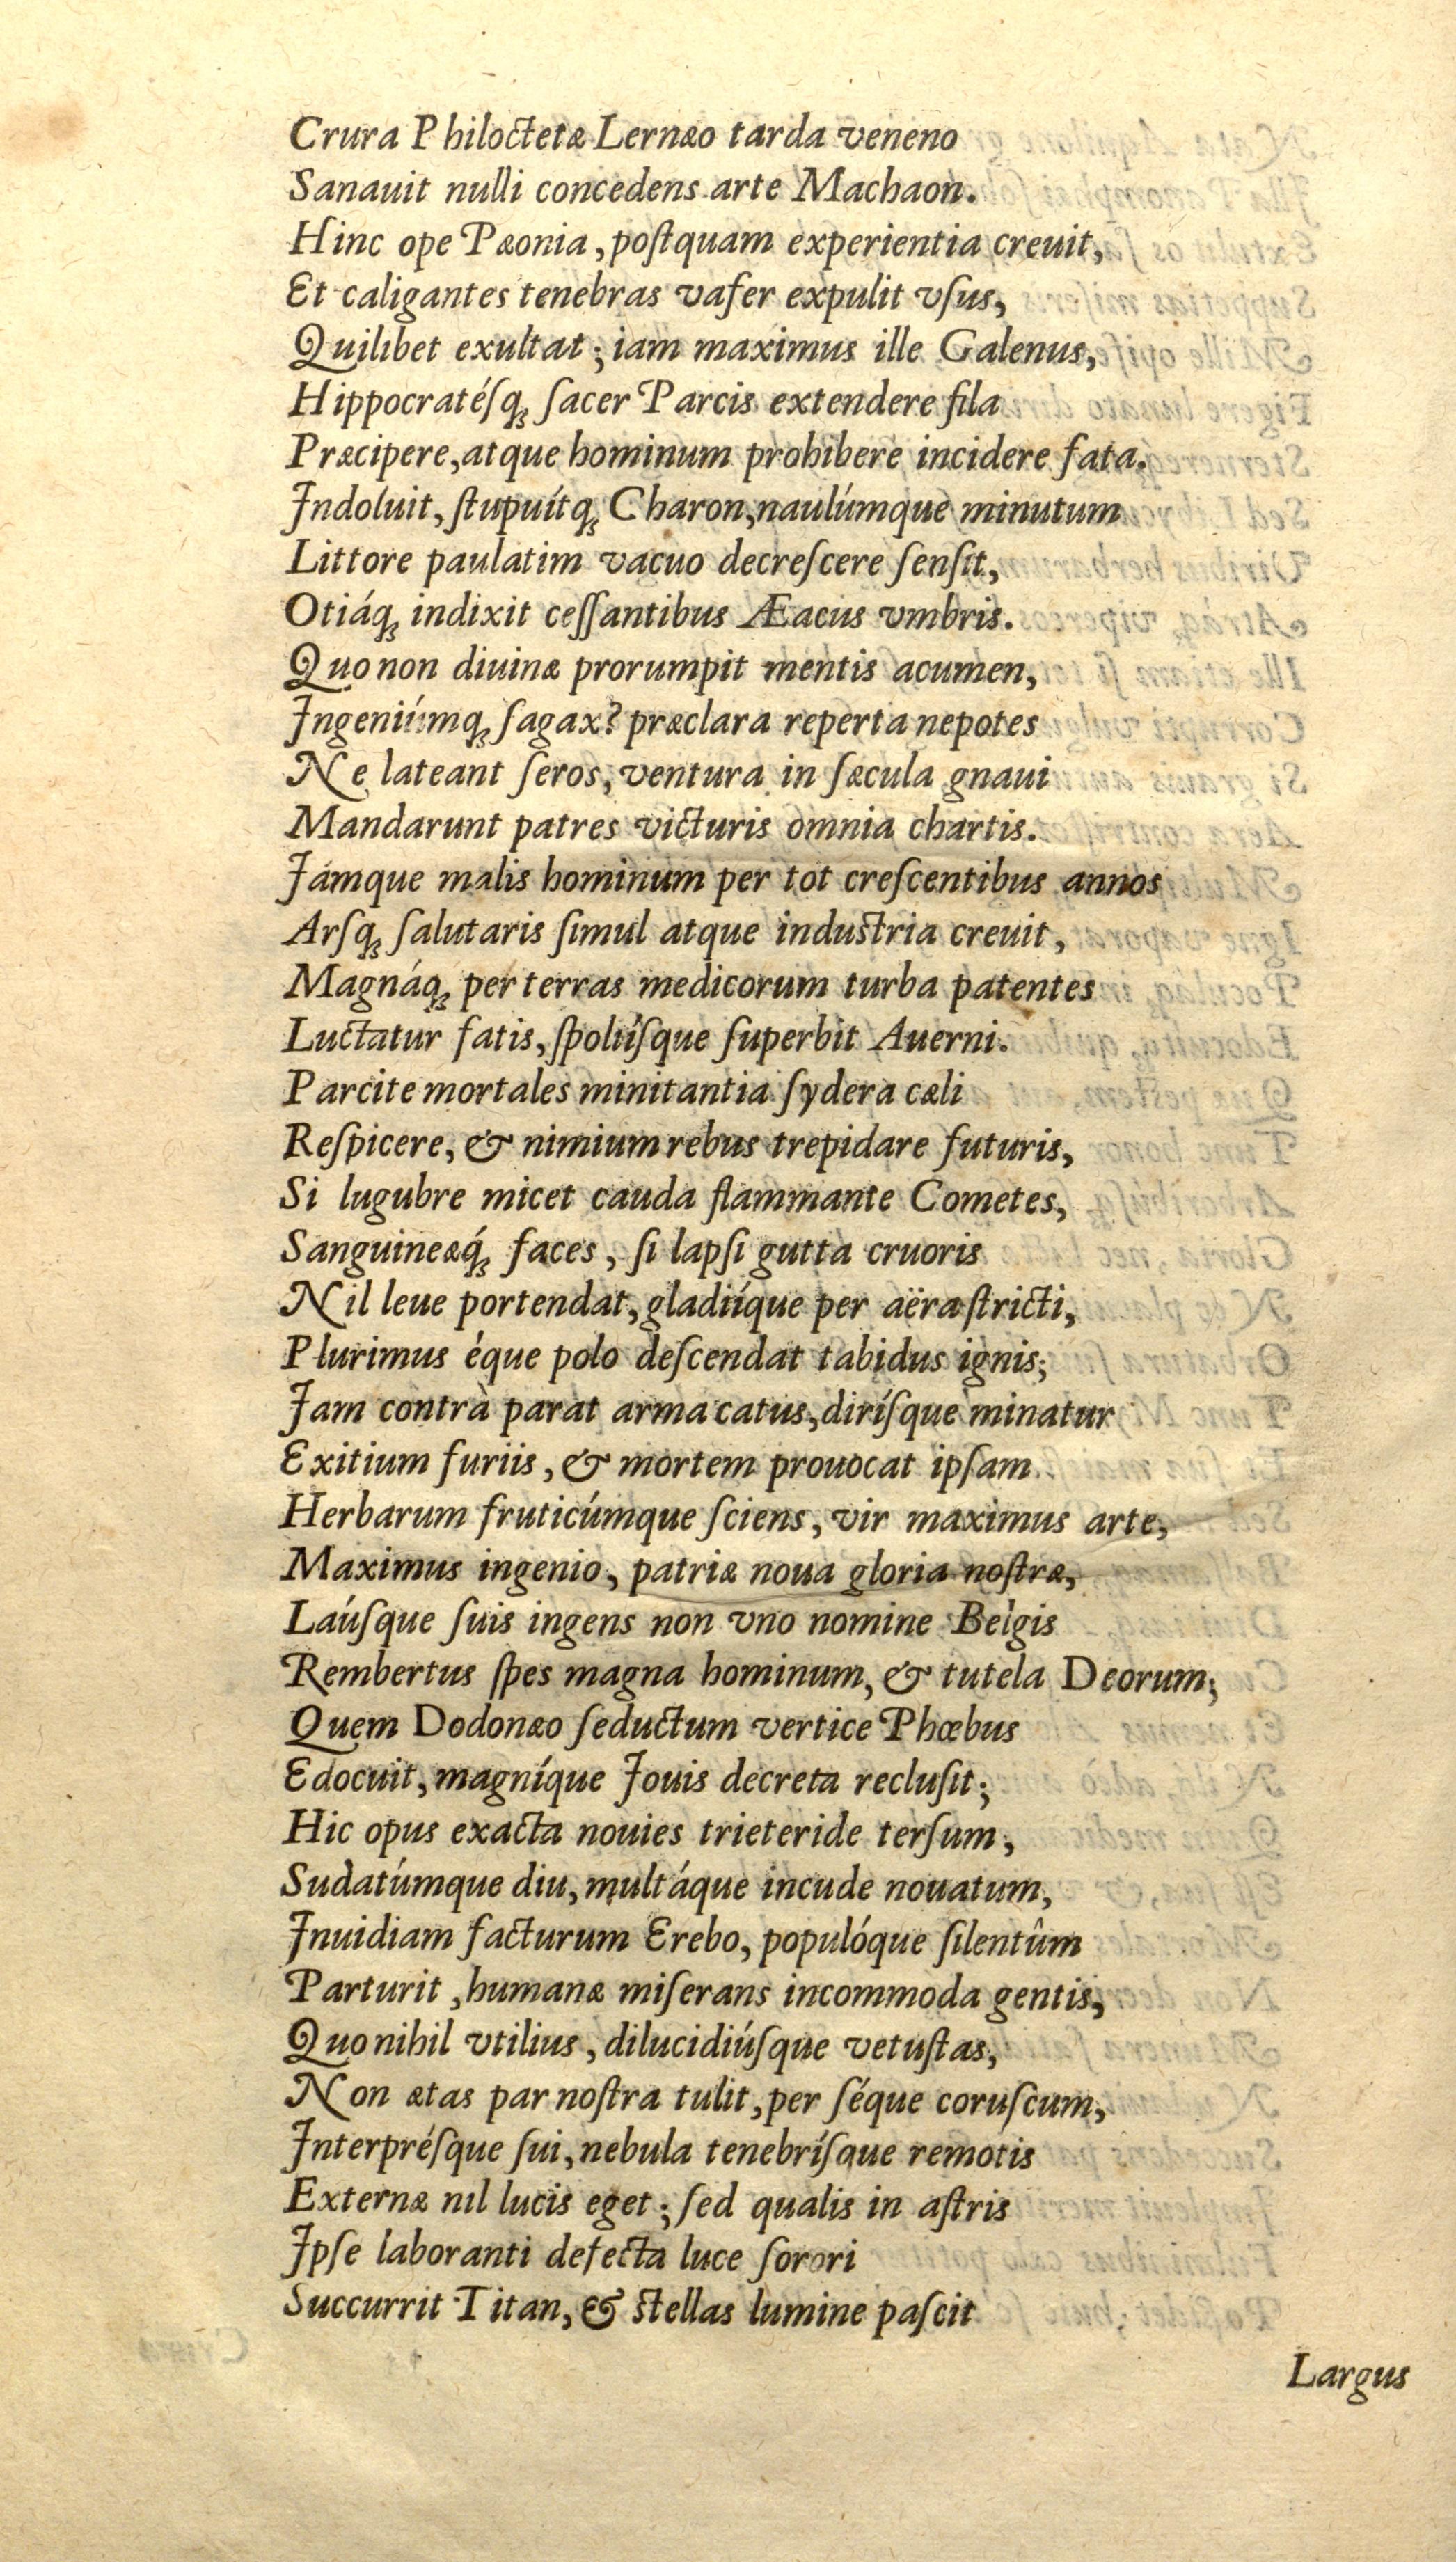 Crura Philoctetæ Lernæo tarda veneno
Sanauit nulli concedens arte Machaon.
Hinc ope Pæonia, poſtquam experientia creuit,
Et caligantes tenebras vafer expulit vſus,
Quilibet exultat; iam maximus ille Galenus,
Hippocratéſq; ſacer Parcis extendere fila
Præcipere, atque hominum prohibere incidere fata.
Indoluit, ſtupuítq; Charon, naulúmque minutum
Littore paulatim vacuo decreſcere ſenſit,
Otiáq; indixit ceſſantibus Æacus vmbris.
Quo non diuinæ prorumpit mentis acumen,
Ingeniúmq; ſagax? præclara reperta nepotes
Ne lateant ſeros, ventura in ſæcula gnaui
Mandarunt patres victuris omnia chartis.
Iámque malis hominum per tot creſcentibus annos
Arſq; ſalutaris ſimul atque induſtria creuit,
Magnáq; per terras medicorum turba patentes
Luctatur fatis, ſpoliíſque ſuperbit Auerni.
Parcite mortales minitantia ſydera cæli
Reſpicere, & nimium rebus trepidare futuris,
Si lugubre micet cauda flammante Cometes,
Sanguineæq́; faces, ſi lapſi gutta cruoris
Nil leue portendat, gladiíque per aëra ſtricti,
Plurimus éque polo deſcendat tabidus ignis;
Iam contrà parat arma catus, diríſque minatur
Exitium furiis, & mortem prouocat ipſam
Herbarum fruticúmque ſciens, vir maximus arte,
Maximus ingenio, patriæ noua gloria noſtræ,
Laúſque ſuis ingens non vno nomine Belgis
Rembertus ſpes magna hominum, & tutela Deorum;
Quem Dodonæo ſeductum vertice Phœbus
Edocuit, magníque Iouis decreta recluſit;
Hic opus exacta nouies trieteride terſum,
Sudatúmque diu, multáque incude nouatum,
Inuidiam facturum Erebo, populóque ſilentûm
Parturit, humanæ miſerans incommoda gentis,
Quo nihil vtilius, dilucidiúſque vetuſtas,
Non ætas par noſtra tulit, per ſéque coruſcum,
Interpréſque ſui, nebula tenebríſque remotis
Externæ nil lucis eget; ſed qualis in aſtris
Ipſe laboranti defecta luce ſorori
Succurrit Titan, & ſtellas lumine paſcit
Largus